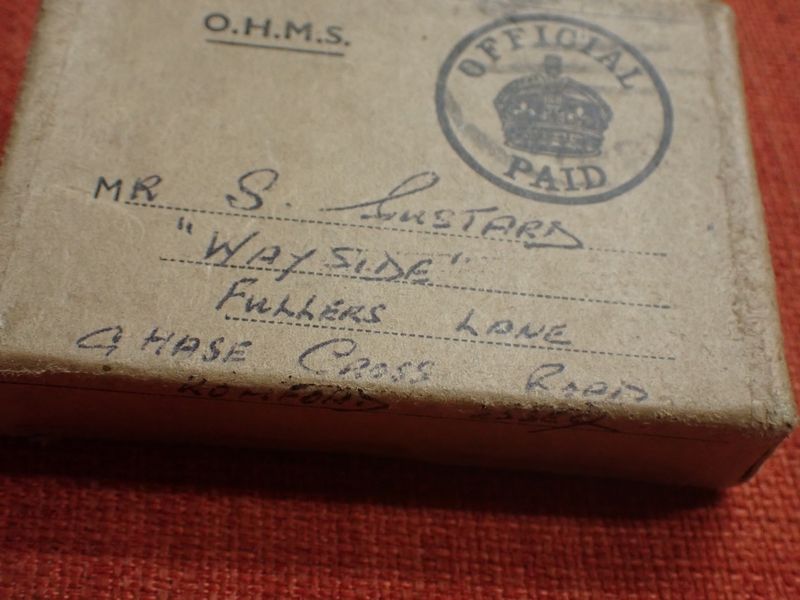 O.H.M.S.
OFFICIAL
PAID
MR S.
"WAYSIDE"
FULLERS LANE
CHASE CROSS ROAD
ROMFORD ESSEX